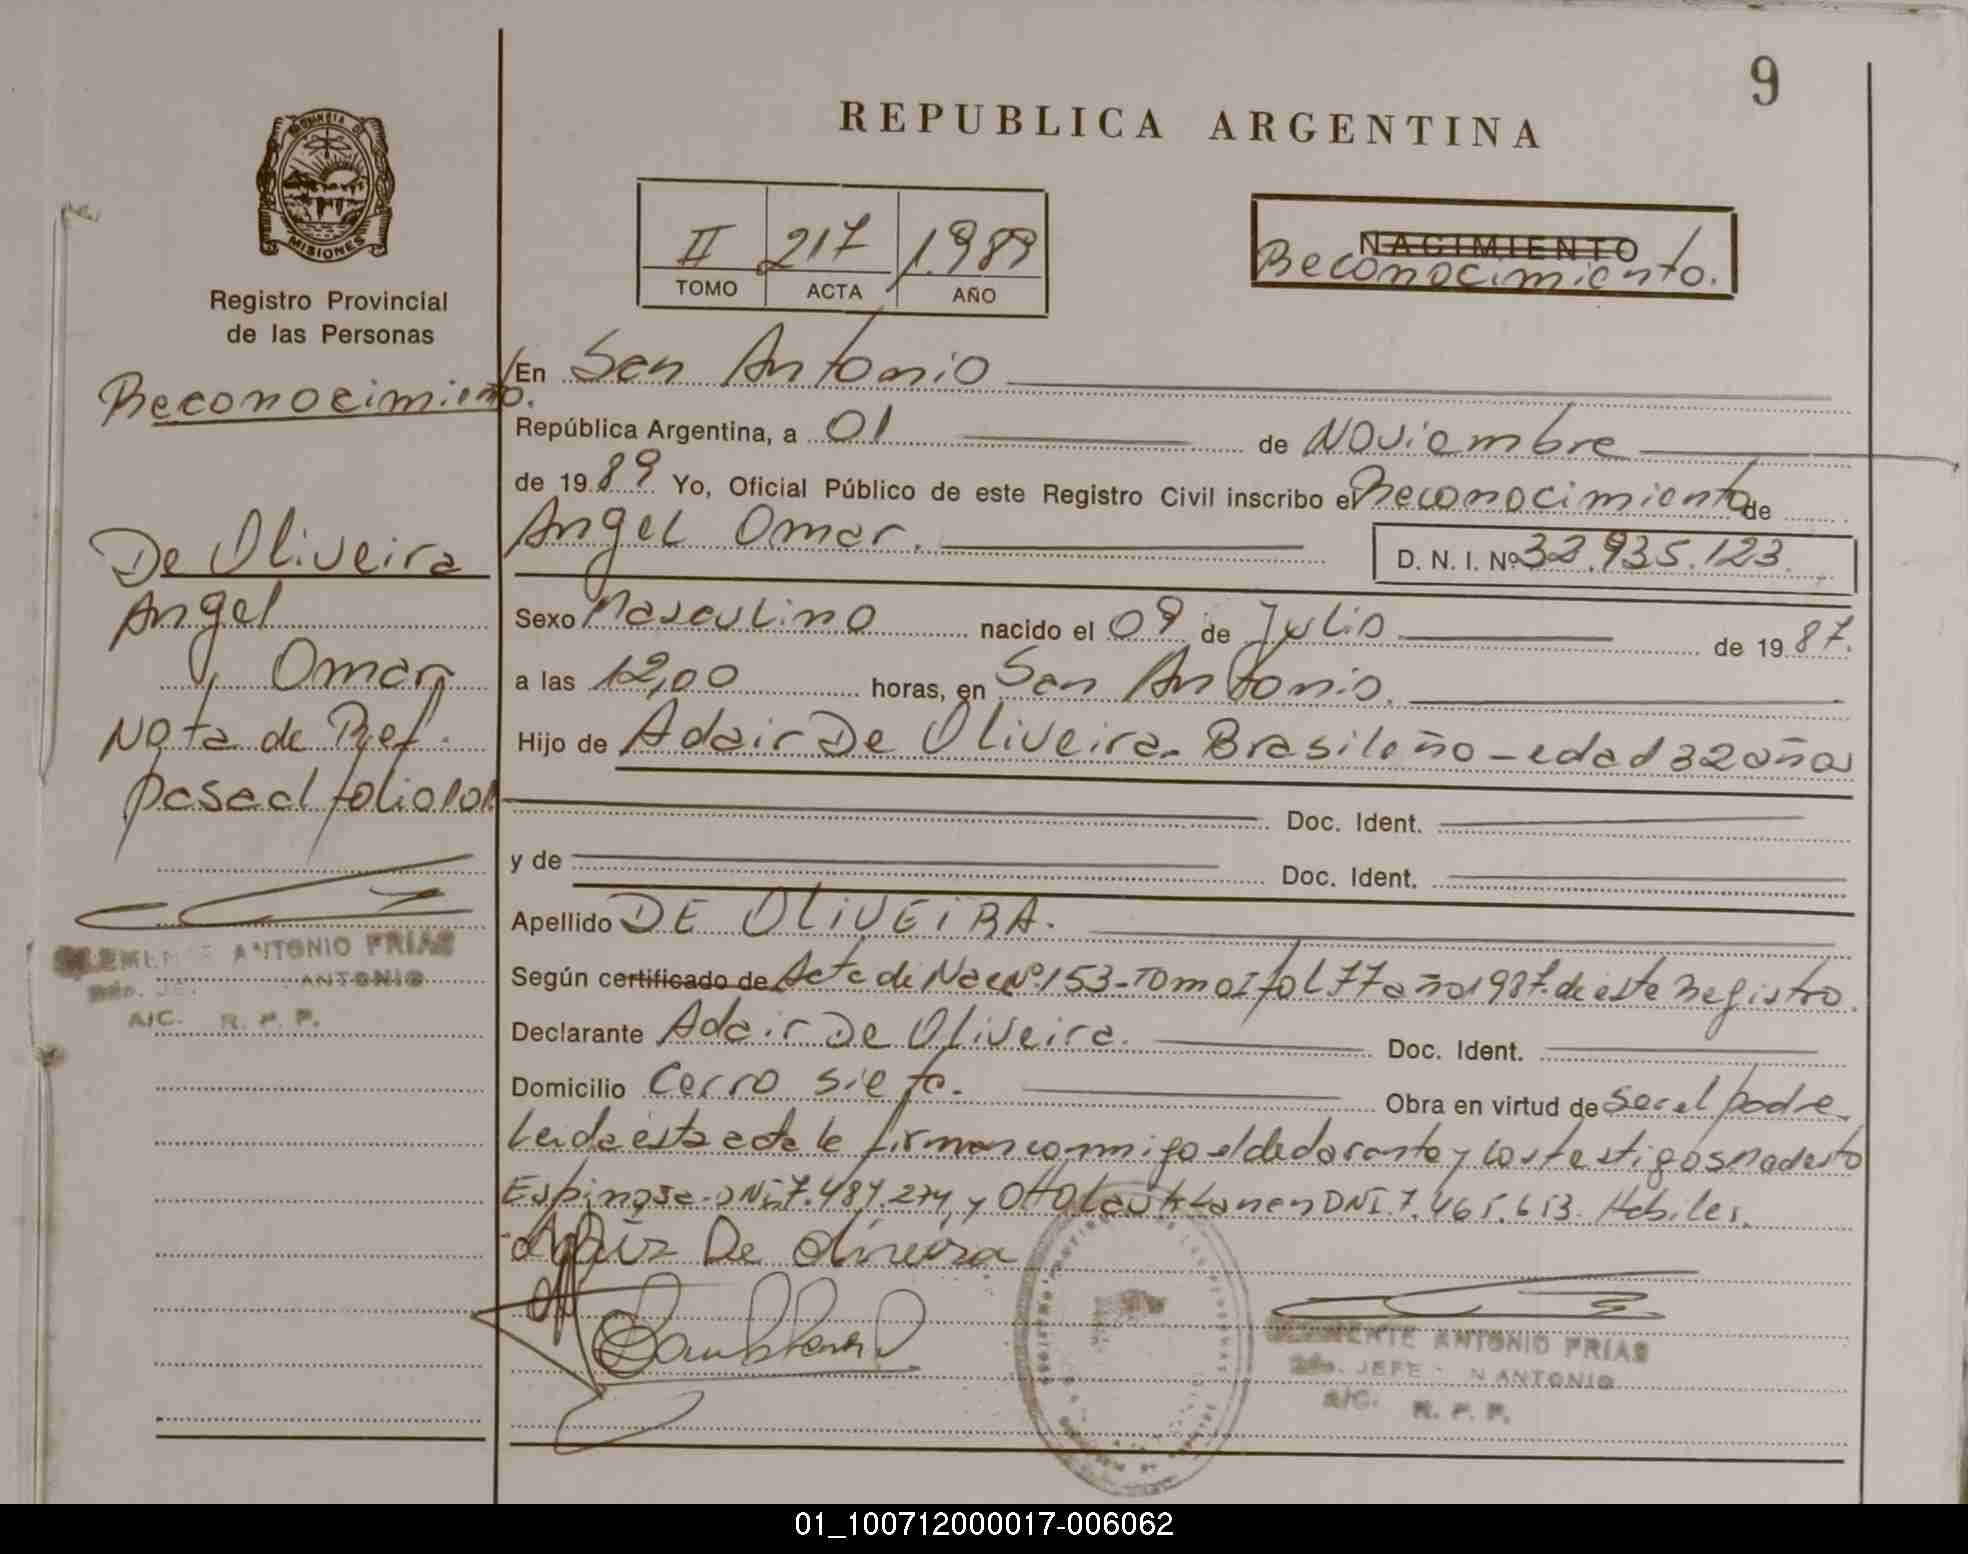 9
REPUBLICA ARGENTINA
PROVINCIA DE
MISIONES
Registro Provincial
de las Personas
II 217 1.989
TOMO ACTA AÑO
NACIMIENTO
Reconocimiento.
Reconocimiento.
De Oliveira
Angel
Omar
Nota de Ref.
pasa al folio 101
CLEMENTE ANTONIO FRIAS
ANTONIO
A/C. R. P. P.
En San Antonio
República Argentina, a 01 de Noviembre
de 1989 Yo, Oficial Público de este Registro Civil inscribo el Reconocimiento de
Angel Omar. D. N. I. Nº 32.935.123
Sexo Masculino nacido el 09 de Julio de 1987.
a las 12,00 horas, en San Antonio.
Hijo de Adair De Oliveira. Brasileño - edad 32 años
Doc. Ident.
y de Doc. Ident.
Apellido DE OLIVEIRA.
Según certificado de Acta de Nac Nº 153 - Tomo I fol 77 año 1987. de este Registro.
Declarante Adair De Oliveira. Doc. Ident.
Domicilio Cerro siete. Obra en virtud de ser el padre.
Leida esta acta la firman conmigo el declarante y los testigos Modesto
Espinosa DNI 7.487.274, y Otto DNI. 7.465.653. Habiles.
Adair De Oliveira
CLEMENTE ANTONIO FRIAS
2do. JEFE N ANTONIO
A/C. R. P. P.
01_100712000017-006062